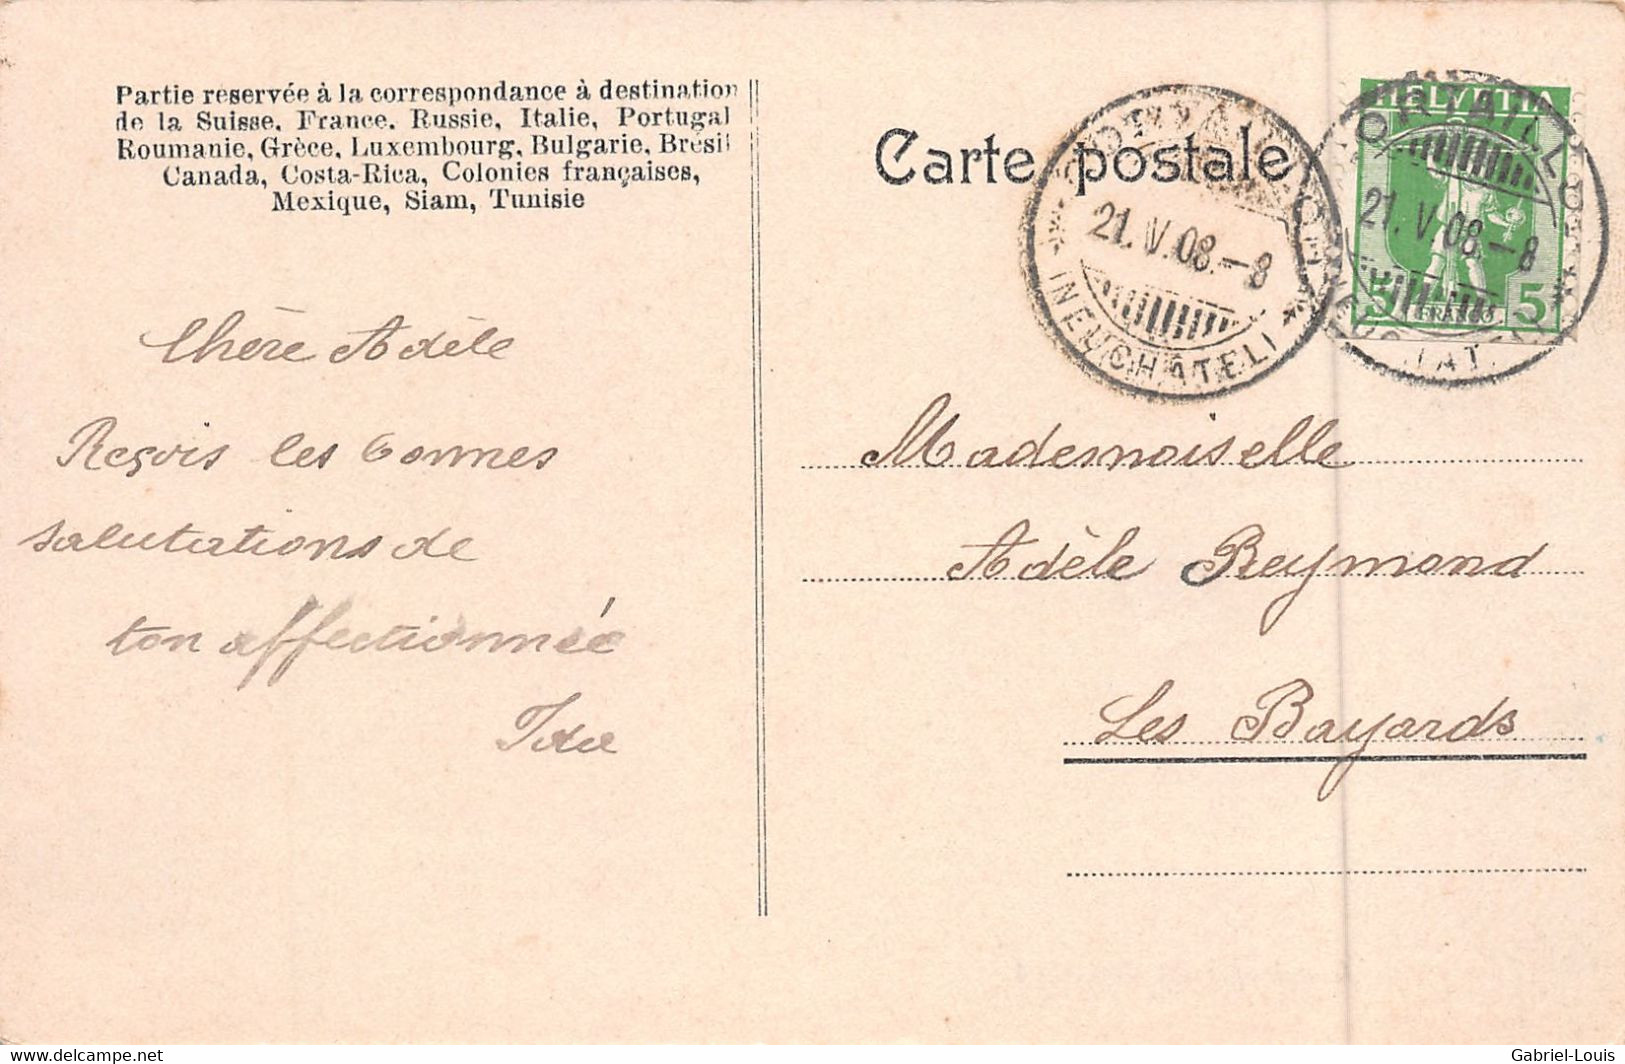 Partie reservée à la correspondance à destination
de la Suisse, France, Russie, Italie, Portugal
Roumanie, Grèce, Luxembourg, Bulgarie, Bresil
Canada, Costa-Rica, Colonies françaises,
Mexique, Siam, Tunisie
Chère Adèle
Reçois les bonnes
salutations de
ton affectionnée
Ida
Carte postale
CORTAILLOD
21.V.08.–8
(NEUCHÂTEL)
HELVETIA
5 FRANCO 5
CORTAILLOD
21.V.08.–8
Mademoiselle
Adèle Reymond
Les Bayards
delcampe.net
Gabriel-Louis